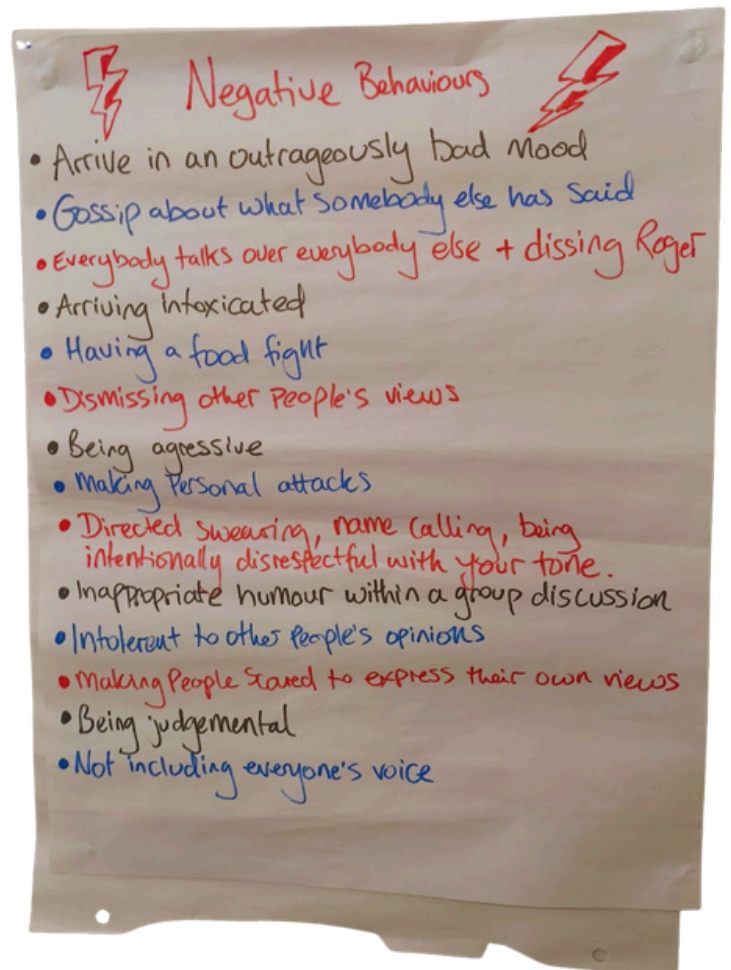 Negative Behaviours
• Arrive in an outrageously bad mood
• Gossip about what somebody else has said
• Everybody talks over everybody else + dissing Roger
• Arriving intoxicated
• Having a food fight
• Dismissing other people's views
• Being agressive
• Making personal attacks
• Directed swearing, name calling, being
intentionally disrespectful with your tone.
• Inappropriate humour within a group discussion
• Intolerent to other people's opinions
• Making people scared to express their own views
• Being judgemental
• Not including everyone's voice